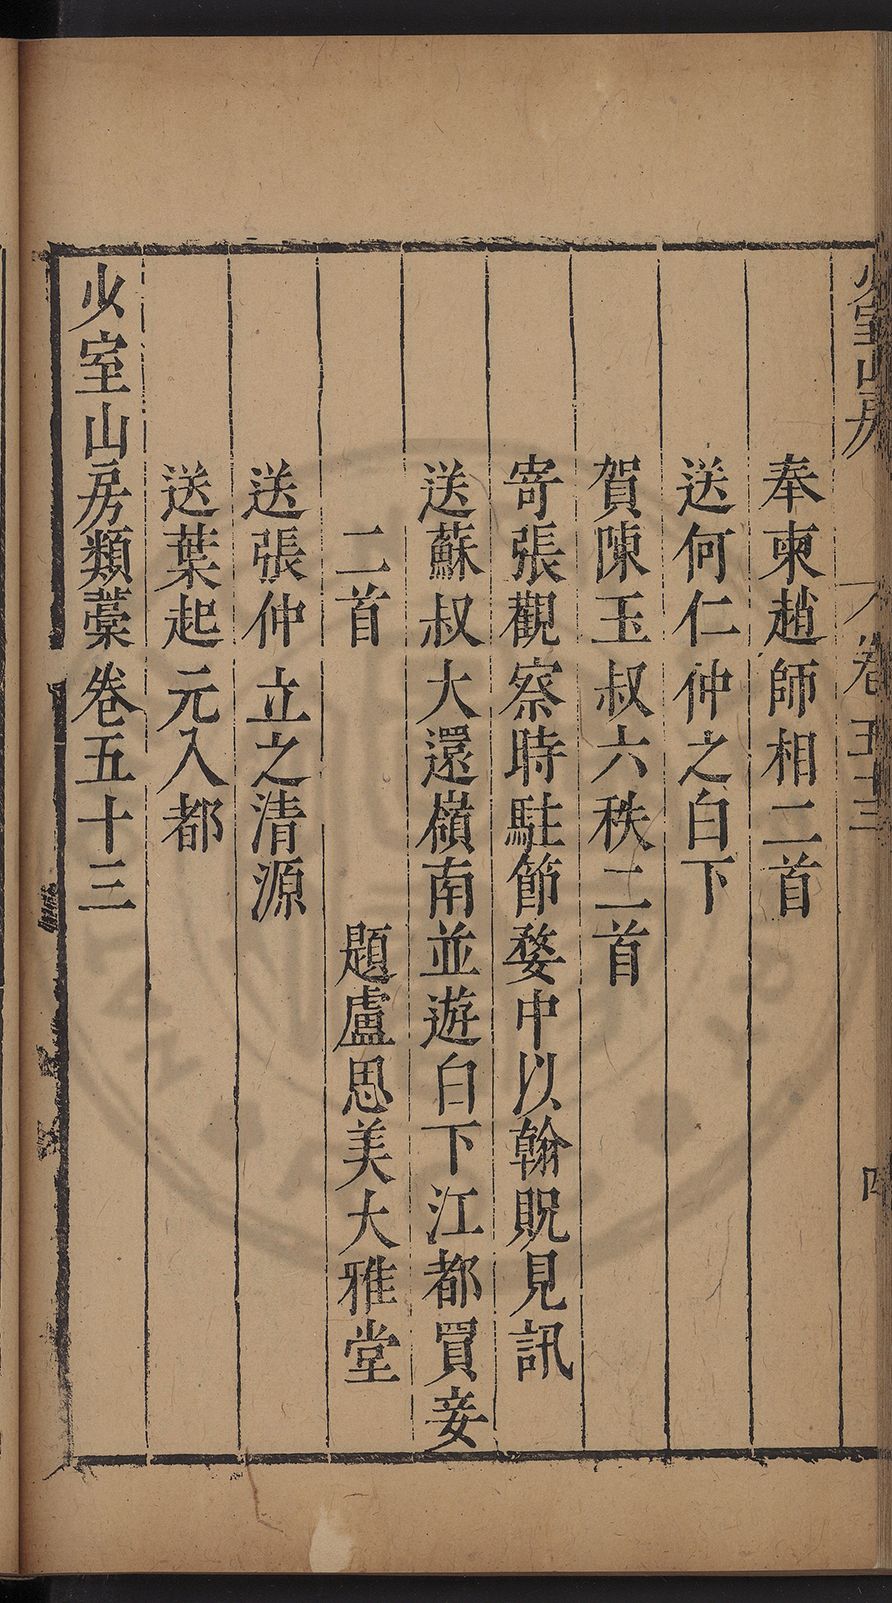 少室山房
卷五十三
四
奉柬趙師相二首
送何仁仲之白下
賀陳玉叔六秩二首
寄張觀察時駐節婺中以翰貺見訊
送蘇叔大還嶺南並遊白下江都買妾
二首
題盧思美大雅堂
送張仲立之清源
送葉起元入都
少室山房類藁卷五十三